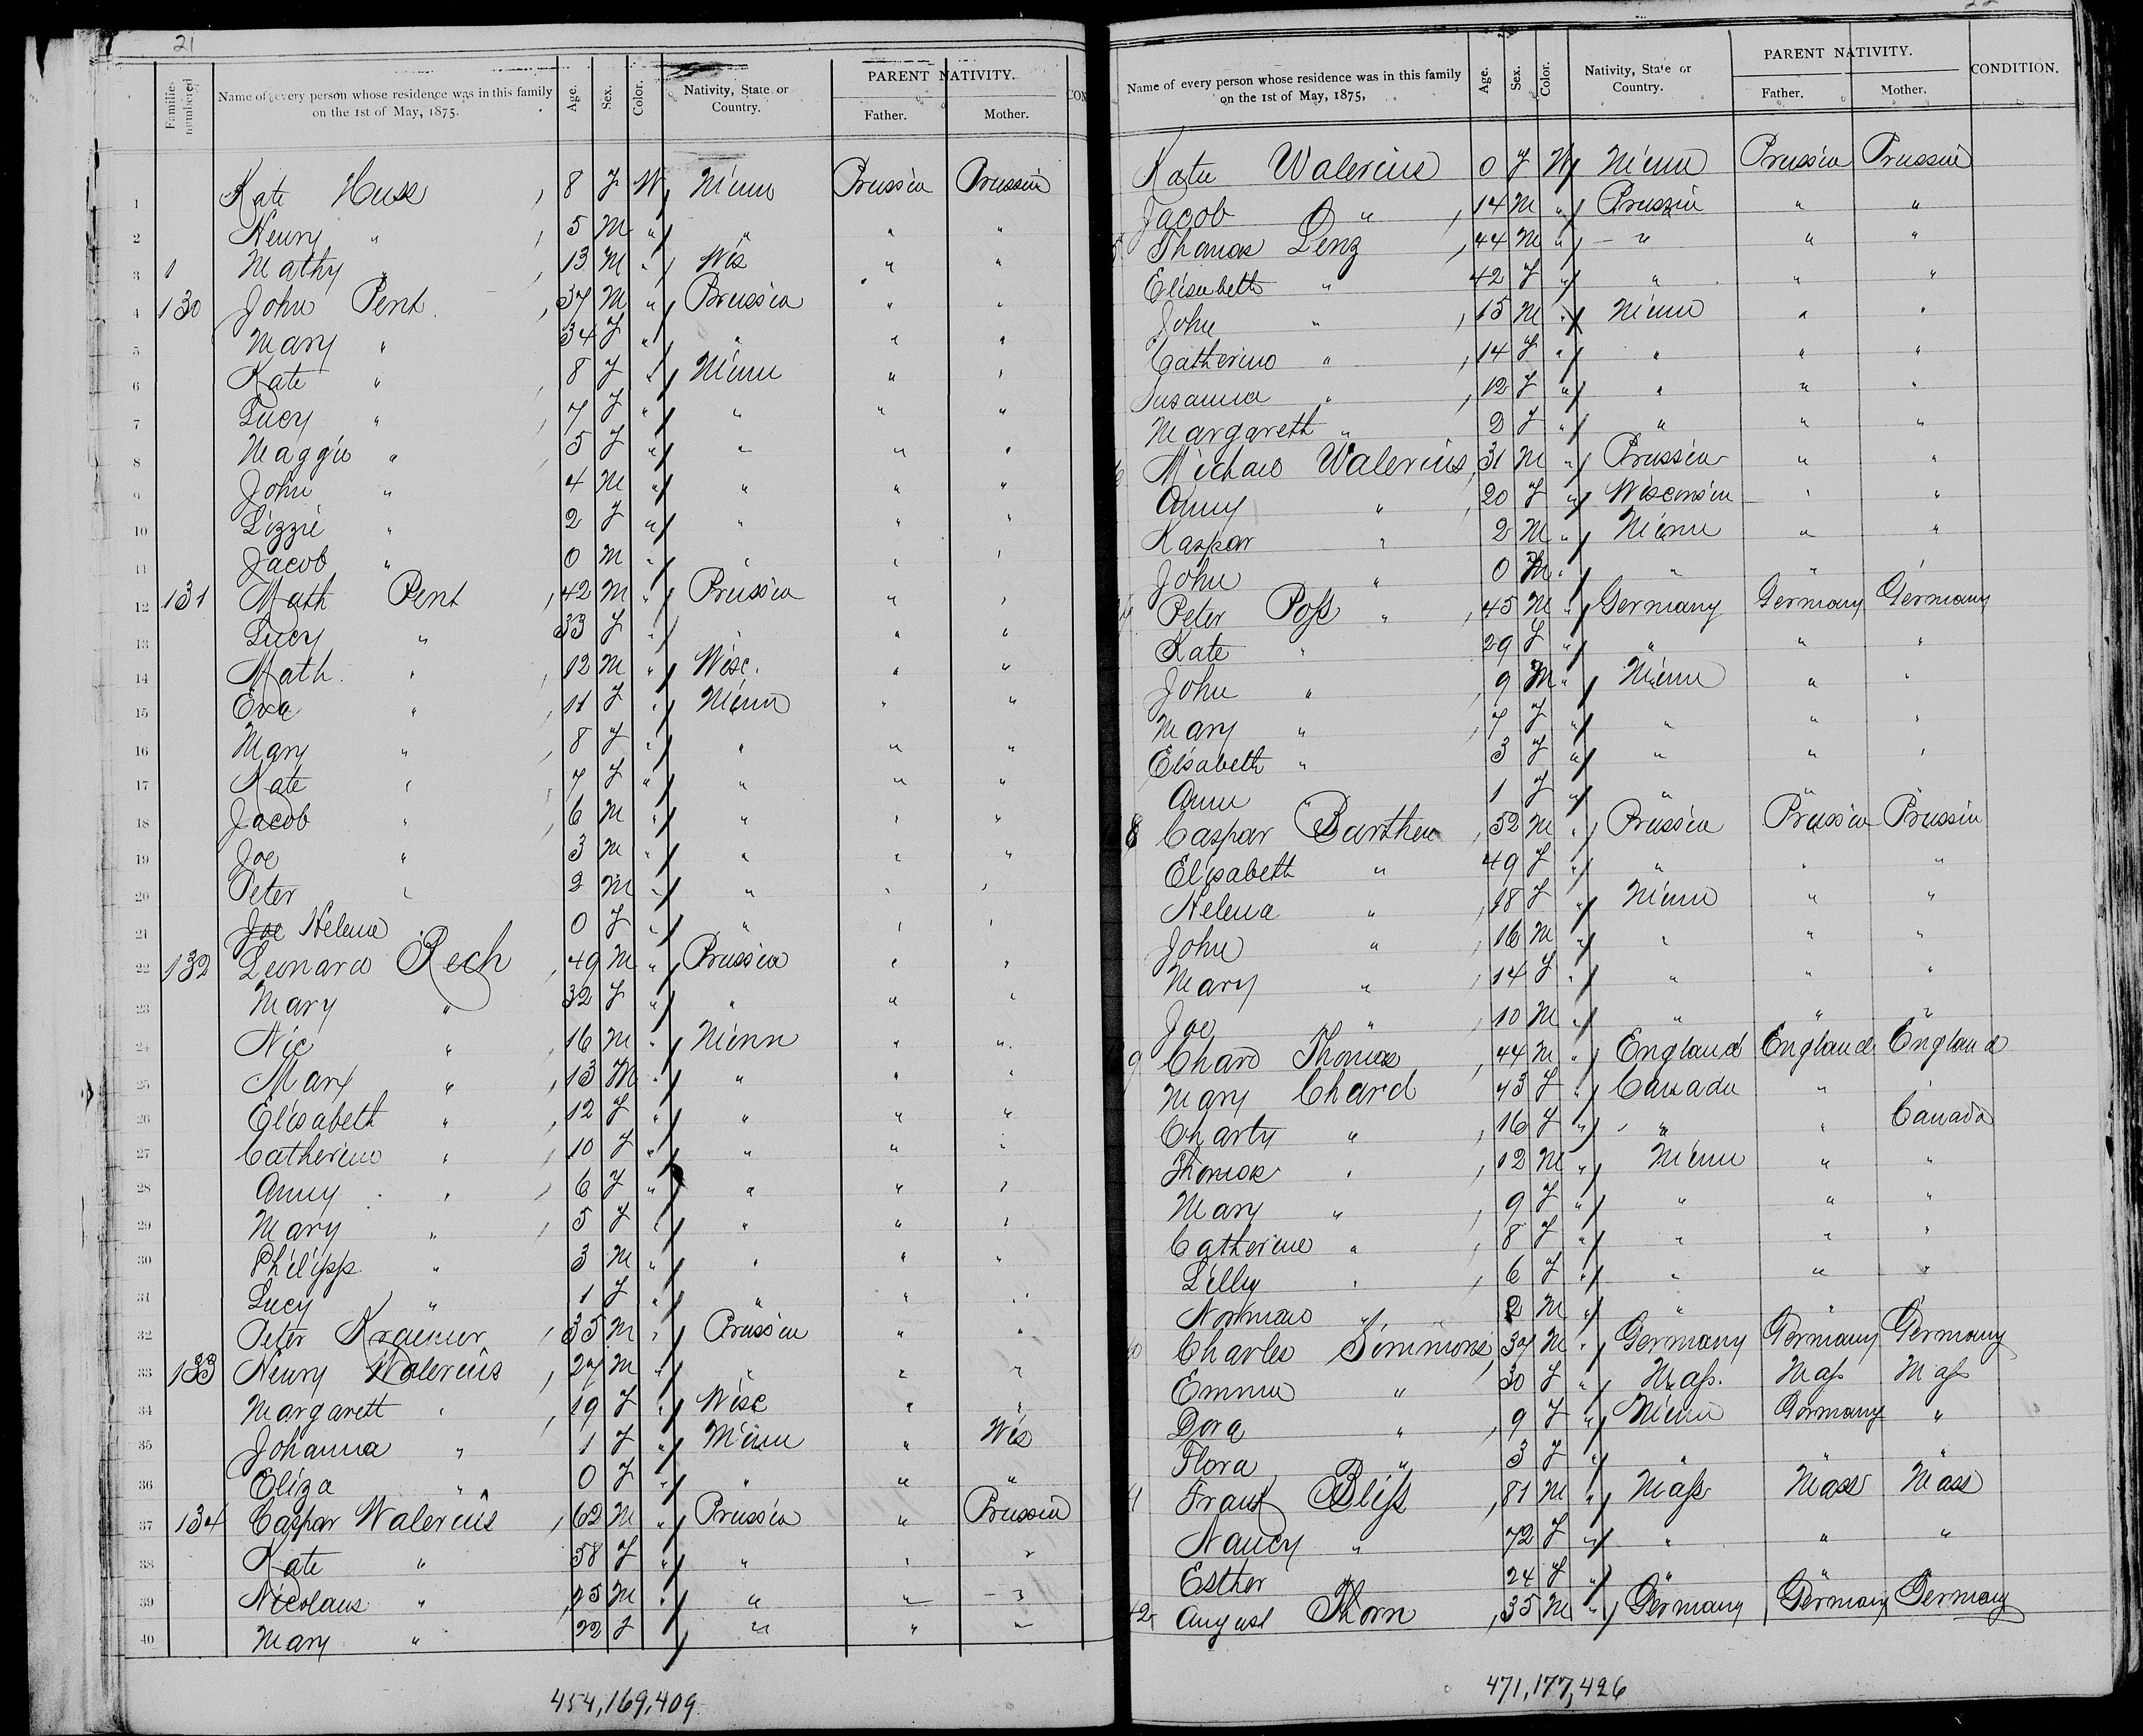 21
Families numbered
Name of every person whose residence was in this family on the 1st of May, 1875.
Age. Sex. Color. Nativity, State or Country. PARENT NATIVITY. Father. Mother. CON
1 Kate Huss , 8 F W Minn Prussia Prussia
2 Henry " , 5 M " " " "
3 1 Mathy " , 13 M " Wis " "
4 130 John Pent , 37 M " Prussia " "
5 Mary " 34 F " " " "
6 Kate " , 8 F " Minn " "
7 Lucy " , 7 F " " " "
8 Maggie " , 5 F " " " "
9 John " 4 M " " " "
10 Lizzie " 2 F " " " "
11 Jacob " 0 M " " " "
12 131 Math Pent , 42 M " Prussia " "
13 Lucy " 33 F " " " "
14 Math. " , 12 M " Wisc. " "
15 Eva " , 11 F " Minn " "
16 Mary " , 8 F " " " "
17 Kate " , 7 F " " " "
18 Jacob " , 6 M " " " "
19 Joe " 3 M " " " "
20 Peter " 2 M " " " "
21 Joe Helene " 0 F " " " "
22 132 Leonard Rech , 49 M " Prussia " "
23 Mary " 32 F " " " "
24 Nic " , 16 M " Minn " "
25 Marx " , 13 M " " " "
26 Elisabeth " , 12 F " " " "
27 Catherine " , 10 F " " " "
28 Anny " , 6 F " " " "
29 Mary " , 5 F " " " "
30 Philipp " 3 M " " " "
31 Lucy " 1 F " " " "
32 Peter Kraemer , 35 M " Prussia " "
33 133 Henry Walerius , 27 M " " " "
34 Margarett " , 19 F " Wisc " "
35 Johanna " 1 F " Minn " Wis
36 Eliza " 0 F " " " "
37 134 Caspar Walerius , 62 M " Prussia " Prussia
38 Kate " 58 F " " " "
39 Nicolaus " , 25 M " " " "
40 Mary " 22 F " " "
454,169,409
22
Name of every person whose residence was in this family on the 1st of May, 1875,
Age. Sex. Color. Nativity, State or Country. PARENT NATIVITY. Father. Mother. CONDITION.
Kate Walerius 0 F W Minn Prussia Prussia
Jacob " , 14 M " Prussia " "
5 Thomas Lenz , 44 M " " " "
Elisabeth " 42 F " " " "
John " , 15 M " Minn " "
Catherine " , 14 F " " " "
Susanna " , 12 F " " " "
Margareth " 2 F " " " "
6 Michael Walerius , 31 M " Prussia " "
Anny " , 20 F " Wisconsin " "
Kaspar " 2 M " Minn " "
John " 0 M " " " "
Peter Poß " , 45 M " Germany Germany Germany
Kate " 29 F " " " "
John " , 9 M " Minn " "
Mary " , 7 F " " " "
Elsabeth " 3 F " " " "
Ann " 1 F " " " "
8 Caspar Barthen , 52 M " Prussia Prussia Prussia
Elisabeth " 49 F " " " "
Helena " , 18 F " Minn " "
John " , 16 M " " " "
Mary " , 14 F " " " "
Joe " , 10 M " " " "
9 Chard Thomas , 44 M " England England England
Mary Chard , 43 F " Canada " "
Charty " , 16 F " " " Canada
Thomas " , 12 M " Minn " "
Mary " , 9 F " " " "
Catherine " , 8 F " " " "
Lilly " , 6 F " " " "
Norman " 2 M " " "
40 Charles Simmons , 37 M " Germany Germany Germany
Emma " 30 F " Maß. Maß Maß
Dora " , 9 F " Minn Germany "
Flora " 3 F " " " "
41 Frank Bliß , 81 M " Maß Mass Mass
Nancy " 72 F " " " "
Esther " 24 F " " "
42 August Thorn , 35 M " Germany Germany Germany
471,177,426